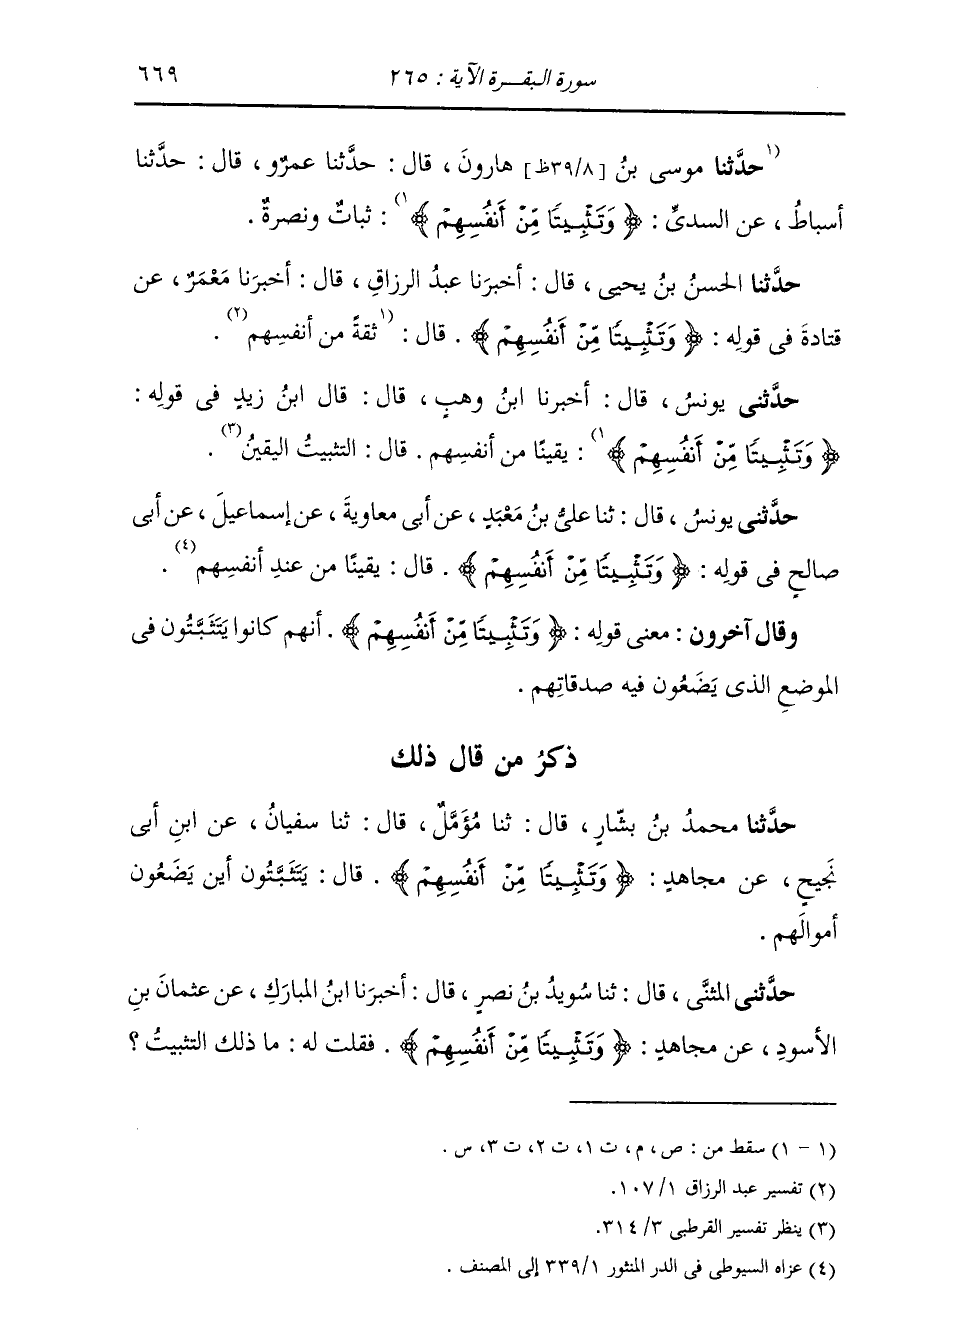 سورة البقرة الآية : ٢٦٥ ٦٦٩
(١حدَّثنا موسى بنُ [٣٩/٨ظ] هارونَ ، قال : حدَّثنا عمرٌو ، قال : حدَّثنا
أسباطُ ، عن السدىِّ : ﴿ وَتَثْبِيتًا مِّنْ أَنفُسِهِمْ ﴾١) : ثباتٌ ونصرةٌ .
حدَّثنا الحسنُ بنُ يحيى ، قال : أخبرَنا عبدُ الرزاقِ ، قال : أخبرَنا مَعْمَرٌ ، عن
قتادةَ فى قولِه : ﴿ وَتَثْبِيتًا مِّنْ أَنفُسِهِمْ ﴾ . قال : (١ثقةً من أنفسِهم(٢) .
حدَّثنى يونسُ ، قال : أخبرنا ابنُ وهبٍ ، قال : قال ابنُ زيدٍ فى قولِه :
﴿ وَتَثْبِيتًا مِّنْ أَنفُسِهِمْ ﴾١) : يقينًا من أنفسِهم . قال : التثبيتُ اليقينُ(٣) .
حدَّثنى يونسُ ، قال : ثنا علىُّ بنُ مَعْبَدٍ ، عن أبى معاويةَ ، عن إسماعيلَ ، عن أبى
صالحٍ فى قولِه : ﴿ وَتَثْبِيتًا مِّنْ أَنفُسِهِمْ ﴾ . قال : يقينًا من عندِ أنفسِهم(٤) .
وقال آخرون : معنى قولِه : ﴿ وَتَثْبِيتًا مِّنْ أَنفُسِهِمْ ﴾ . أنهم كانوا يَتَثَبَّتُون فى
الموضعِ الذى يَضَعُون فيه صدقاتِهم .
ذكرُ من قال ذلك
حدَّثنا محمدُ بنُ بشّارٍ ، قال : ثنا مُؤَمَّلٌ ، قال : ثنا سفيانُ ، عن ابنِ أبى
نَجيحٍ ، عن مجاهدٍ : ﴿ وَتَثْبِيتًا مِّنْ أَنفُسِهِمْ ﴾ . قال : يَتَثَبَّتُون أين يَضَعُون
أموالَهم .
حدَّثنى المثنَّى ، قال : ثنا سُويدُ بنُ نصرٍ ، قال : أخبرَنا ابنُ المبارَكِ ، عن عثمانَ بنِ
الأسودِ ، عن مجاهدٍ : ﴿ وَتَثْبِيتًا مِّنْ أَنفُسِهِمْ ﴾ . فقلت له : ما ذلك التثبيتُ ؟
(١ - ١) سقط من : ص ، م ، ت ١، ت ٢، ت ٣، س .
(٢) تفسير عبد الرزاق ١٠٧/١.
(٣) ينظر تفسير القرطبى ٣١٤/٣.
(٤) عزاه السيوطى فى الدر المنثور ٣٣٩/١ إلى المصنف .